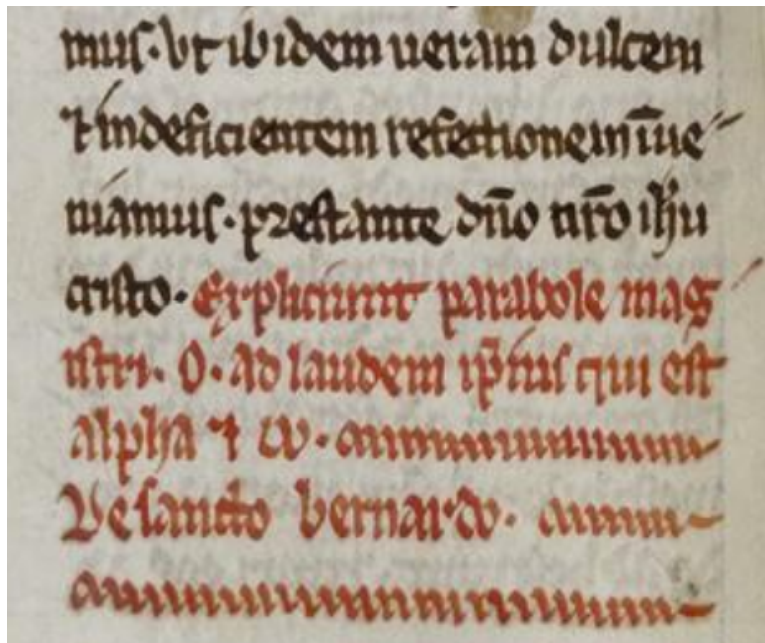 mus. vt ibidem ueram dulcem
⁊ indeficientem refectionem īue-
niamus. prestante dn̄o nr̄o ih̄u
cristo. Expliciunt parabole mag-
istri. O. ad laudem ip̄ius qui est
alpha ⁊ ω.
De sancto bernardo.